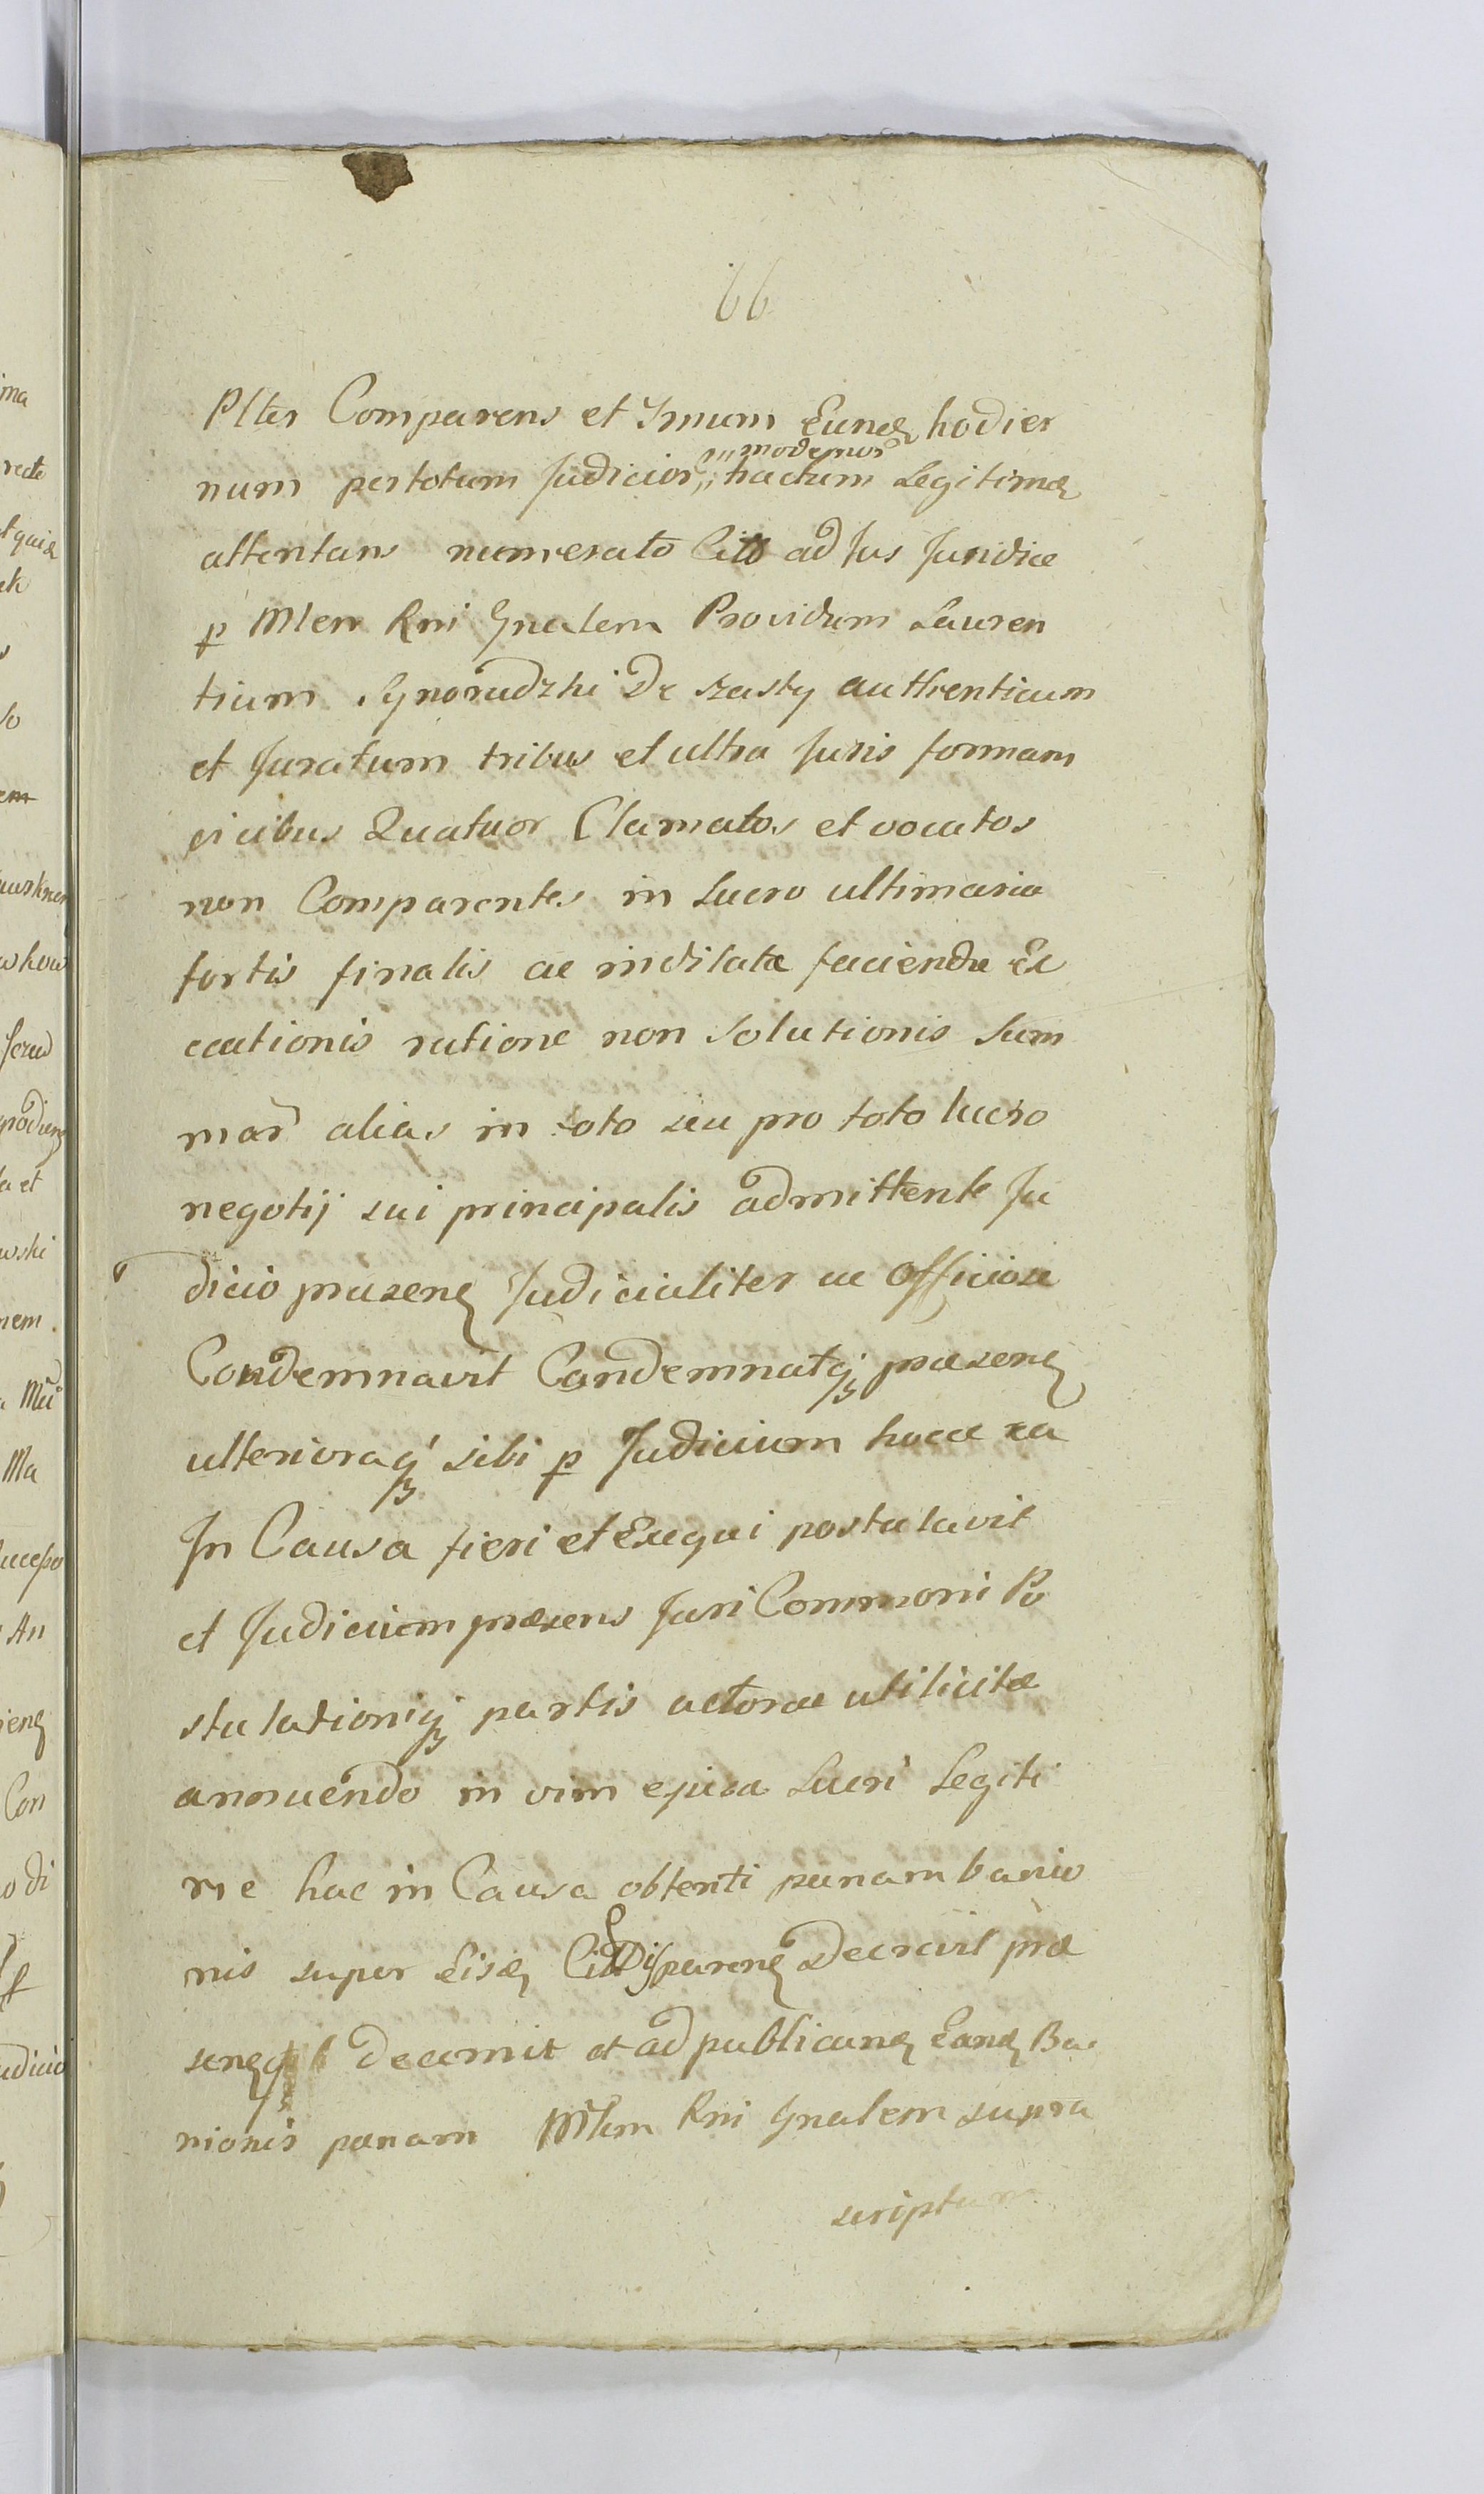 66
Plter Comparens et Ymum Eund hodier
num per totum Judicior modernor tractum Legitime
attentans numerato Citos ad Jus Juridice
p Mlem Rni Gnalem Providum Lauren
tium Synorudzki De Szasty authenticum
et Juratum tribus et ultra Juris formam
vicibus Quatuor Clamatos et vocatos
non Comparentes in Lucro ultimaria
fortis finalis ac indilatæ faciendæ Ex
ecutionis ratione non Solutionis Sum
mar alias in toto seu pro toto lucro
negotij sui principalis admittente Ju
dicio præsenę Judicialiter ac Officiose
Condemnavit Condemnatq; præsenę
ulterioraq; sibi p Judicium hocce ea
In Causa fieri et Exequi postulavit
et Judicium præsens Juri Commoni Po
stulationiq; partis actoræ utilicitæ
annuendo in vim ejusce Lucri Legiti
me hac in Causa obtenti pænam banio
nis super Eisd Citt Disparenę Decrevit præ
senęq; decernit et ad publicand Eand Ba
nionis pænam Mlem Rni Gnalem supra
scriptum